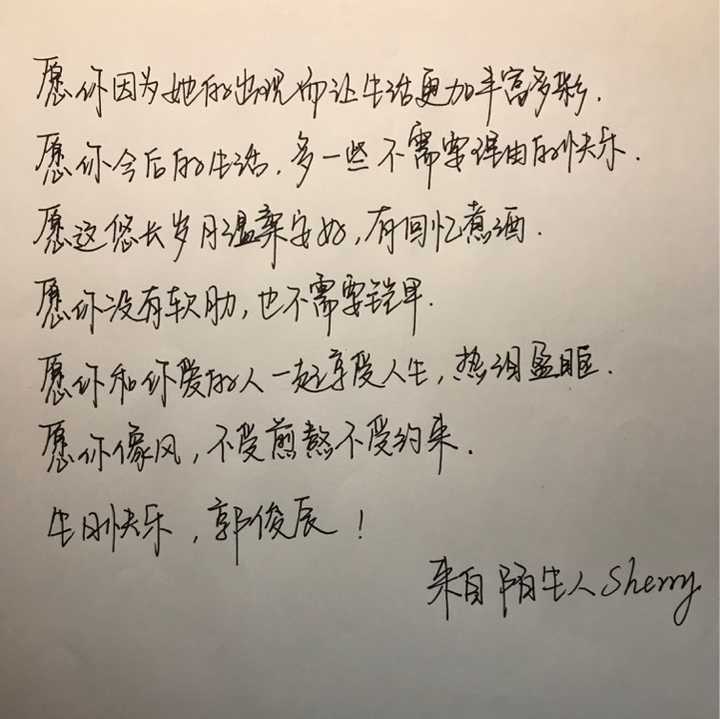 愿你因为她的出现而让生活更加丰富多彩.
愿你今后的生活,多一些不需要理由的快乐.
愿这悠长岁月温柔安好,有回忆煮酒.
愿你没有软肋,也不需要铠甲.
愿你和你爱的人一起享受人生,热泪盈眶.
愿你像风,不受煎熬不受约束.
生日快乐,郭俊辰!
来自陌生人Sherry